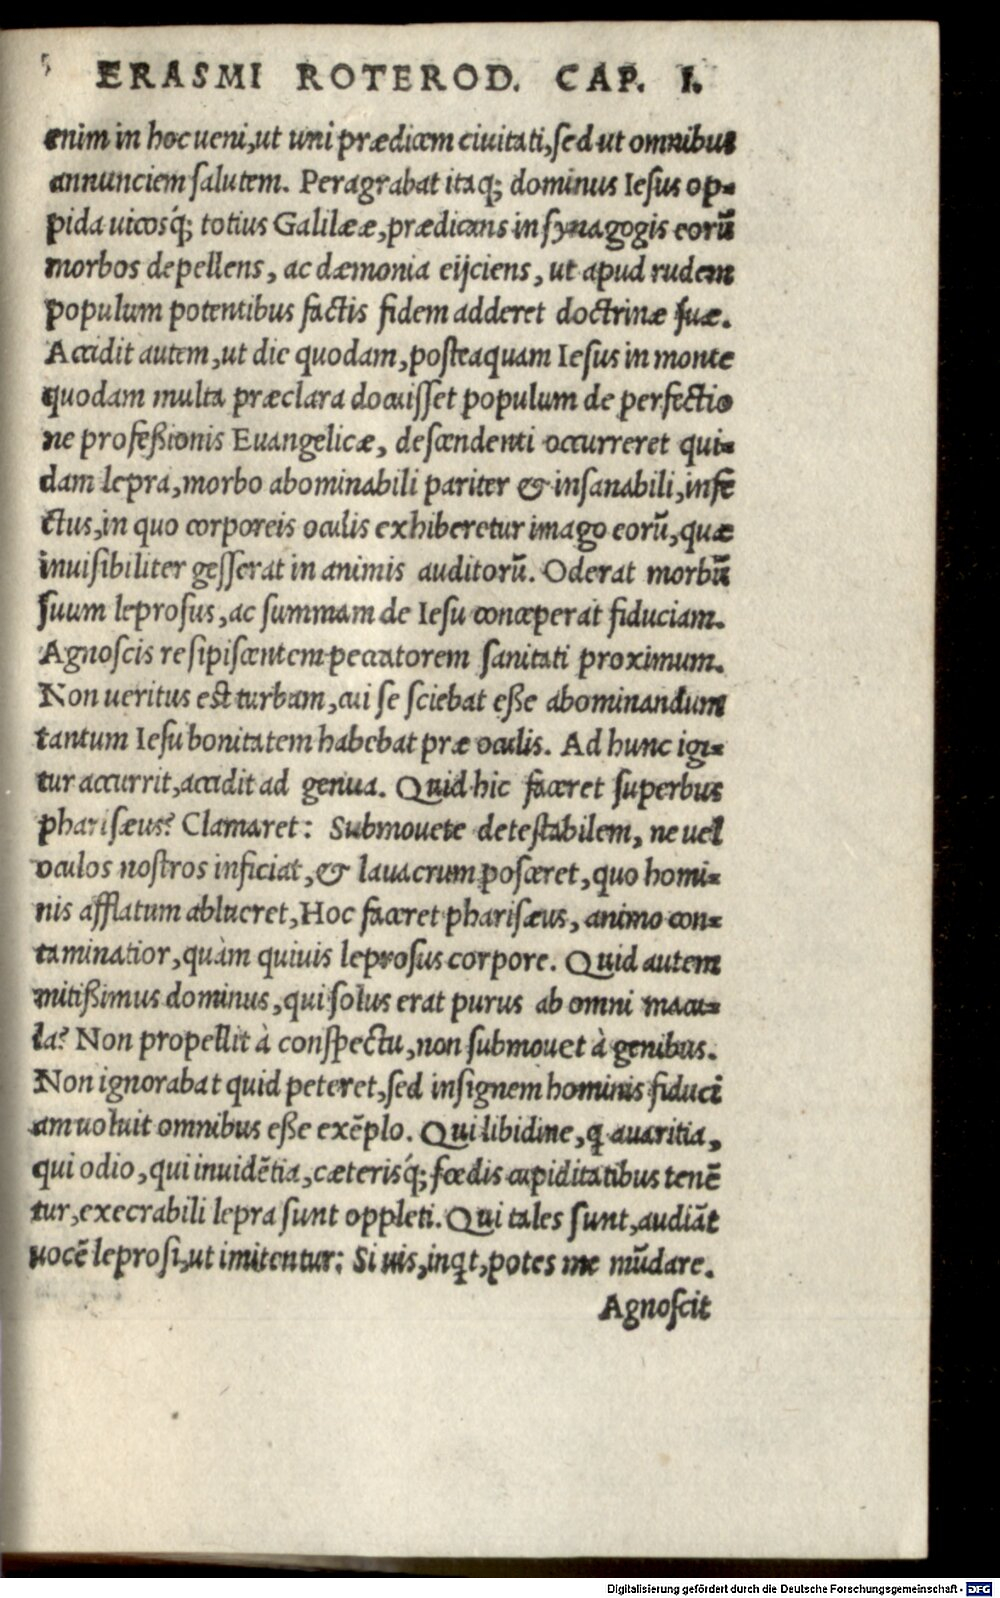 ERASMI ROTEROD. CAP. I.
enim in hoc ueni,ut uni prædicem ciuitati,sed ut omnibus
annunciem salutem. Peragrabat itaq; dominus Iesus op-
pida uicosq́; totius Galilææ,prædicans in synagogis eorū
morbos depellens, ac dæmonia eijciens, ut apud rudem
populum potentibus factis fidem adderet doctrinæ suæ.
Accidit autem,ut die quodam,posteaquam Iesus in monte
quodam multa præclara docuisset populum de perfectio
ne profeßionis Euangelicæ, descendenti occurreret qui-
dam lepra,morbo abominabili pariter & insanabili,infe
ctus,in quo corporeis oculis exhiberetur imago eorū,quæ
inuisibiliter gesserat in animis auditorū. Oderat morbū
suum leprosus,ac summam de Iesu conceperat fiduciam.
Agnoscis resipiscentem peccatorem sanitati proximum.
Non ueritus est turbam,cui se sciebat eße abominandum
tantum Iesu bonitatem habebat præ oculis. Ad hunc igi-
tur accurrit,accidit ad genua. Quid hic faceret superbus
pharisæus? Clamaret: Submouete detestabilem, ne uel
oculos nostros inficiat,& lauacrum posceret,quo homi-
nis afflatum ablueret,Hoc faceret pharisæus, animo con-
taminatior,quàm quiuis leprosus corpore. Quid autem
mitißimus dominus,qui solus erat purus ab omni macu-
la? Non propellit à conspectu,non submouet à genibus.
Non ignorabat quid peteret,sed insignem hominis fiduci
am uoluit omnibus eße exēplo. Qui libidine,q auaritia,
qui odio,qui inuidētia,cæterisq́; fœdis cupiditatibus tenē
tur,execrabili lepra sunt oppleti. Qui tales sunt,audiāt
uocē leprosi,ut imitentur: Si uis,inqt,potes me mūdare.
Agnoscit
Digitalisierung gefördert durch die Deutsche Forschungsgemeinschaft - DFG